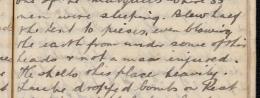 one of the marquees where 33
men were sleeping. Blew half
the tent to pieces, even blowing
the earth from under some of their
heads & not a man injured.
He shells this place heavily.
he dropped bombs on Rest